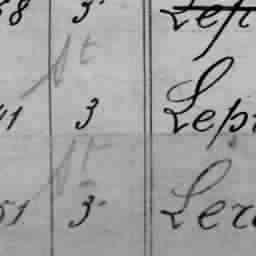 58 3 Lep
St
41 3 Lep
St
51 3 Ler